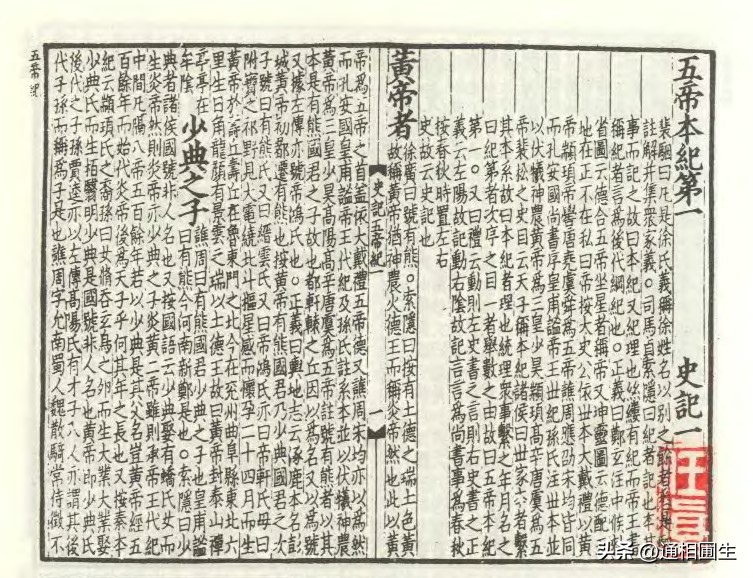 五帝本紀第一　史記一
裴駰曰凡是徐氏義稱徐姓名以別之餘者悉是駰
註解并集衆家義。司馬貞索隱曰紀者記也本其
事而記之故曰本紀又紀理也絲縷有紀而帝王書
稱紀者言爲後代綱紀也。正義曰鄭玄注中候勑
省圖云德合五帝坐星者稱帝又坤靈圖云德配天
地在正不在私曰帝按太史公依世本大戴禮以黃
帝顓頊帝嚳唐堯虞舜爲五帝譙周應劭宋均皆同
而孔安國尚書序皇甫謐帝王世紀孫氏注世本並
以伏犧神農黃帝爲三皇少昊顓頊高辛唐虞爲五
帝裴松之史目云天子稱本紀諸侯曰世家本者繫
其本系故曰本紀者理也統理衆事繫之年月名之
曰紀第者次序之目一者舉數之由故曰五帝本紀
第一。又曰禮云動則左史書之言則右史書之正
義云左陽故記動右陰故記言言爲尚書事爲春秋
按春秋時置左右
史故云史記也
黃帝者
徐廣曰號有熊。索隱曰按有土德之瑞土色黃
故稱黃帝猶神農火德王而稱炎帝然也此以黃
史記五帝紀一
一
帝爲五帝之首蓋依大戴禮五帝德又譙周宋均亦以爲然
而孔安國皇甫謐帝王代紀及孫氏註系本並以伏犧神農
黃帝爲三皇少昊高陽高辛唐虞爲五帝註號有熊者以其
本是有熊國君之子故也都軒轅之丘因以爲名又以爲號
又據左傳亦號帝鴻氏也。正義曰輿地志云涿鹿本名彭
城黃帝初都遷有熊也按黃帝有熊國君乃少典國君之次
子號曰有熊氏又曰縉雲氏又曰帝鴻氏亦曰帝軒氏母曰
附寶之祁野見大電繞北斗樞星感而懷孕二十四月而生
黃帝於壽丘壽丘在魯東門之北今在兗州曲阜縣東北六
里生日角龍顏有景雲之瑞以土德王故曰黃帝封泰山禪
亭亭在
牟陰
少典之子
譙周曰有熊國君少典之子也皇甫謐
曰有熊今河南新鄭是也。索隱曰少
典者諸侯國號非人名也又按國語云少典娶有蟜氏女而
生炎帝然則炎帝亦少典之子炎黃二帝雖則承帝王代紀
中間凡隔八帝五百餘年若以少典是其父名豈黃帝經五
百餘年而始代炎帝後爲天子乎何其年之長也又按秦本
紀云顓頊氏之裔孫曰女脩吞玄鳥之卵而生大業大業娶
少典氏而生栢翳明少典是國號非人名也黃帝即少典氏
後代之子孫賈逵亦以左傳高陽氏有才子八人亦謂其後
代子孫而稱爲子是也譙周字允南蜀人魏散騎常侍徵不
五帝紀
头条 @通相圃生